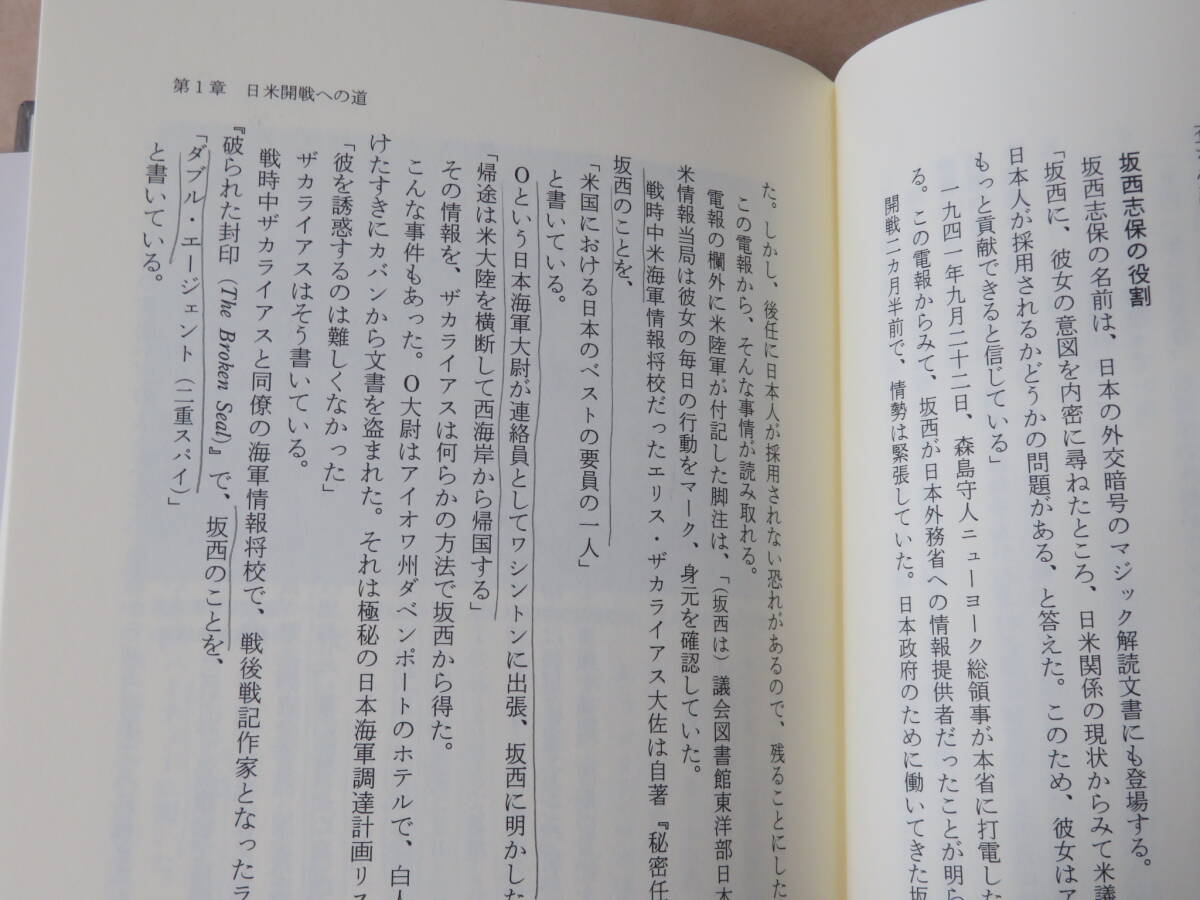 坂西志保の役割
坂西志保の名前は、日本の外交暗号のマジック解読文書にも登場する。
「坂西に、彼女の意図を内密に尋ねたところ、日米関係の現状からみて米議
日本人が採用されるかどうかの問題がある、と答えた。このため、彼女はア
もっと貢献できると信じている」
一九四一年九月二十二日、森島守人ニューヨーク総領事が本省に打電した
る。この電報からみて、坂西が日本外務省への情報提供者だったことが明ら
開戦二カ月半前で、情勢は緊張していた。日本政府のために働いてきた坂
第1章 日米開戦への道
た。しかし、後任に日本人が採用されない恐れがあるので、残ることにした
この電報から、そんな事情が読み取れる。
電報の欄外に米陸軍が付記した脚注は、「（坂西は）議会図書館東洋部日本
米情報当局は彼女の毎日の行動をマーク、身元を確認していた。
戦時中米海軍情報将校だったエリス・ザカライアス大佐は自著『秘密任
坂西のことを、
「米国における日本のベストの要員の一人」
と書いている。
Oという日本海軍大尉が連絡員としてワシントンに出張、坂西に明かした
「帰途は米大陸を横断して西海岸から帰国する」
その情報を、ザカライアスは何らかの方法で坂西から得た。
こんな事件もあった。O大尉はアイオワ州ダベンポートのホテルで、白人
けたすきにカバンから文書を盗まれた。それは極秘の日本海軍調達計画リス
「彼を誘惑するのは難しくなかった」
ザカライアスはそう書いている。
戦時中ザカライアスと同僚の海軍情報将校で、戦後戦記作家となったラ
『破られた封印（The Broken Seal）』で、坂西のことを、
「ダブル・エージェント（二重スパイ）」
と書いている。